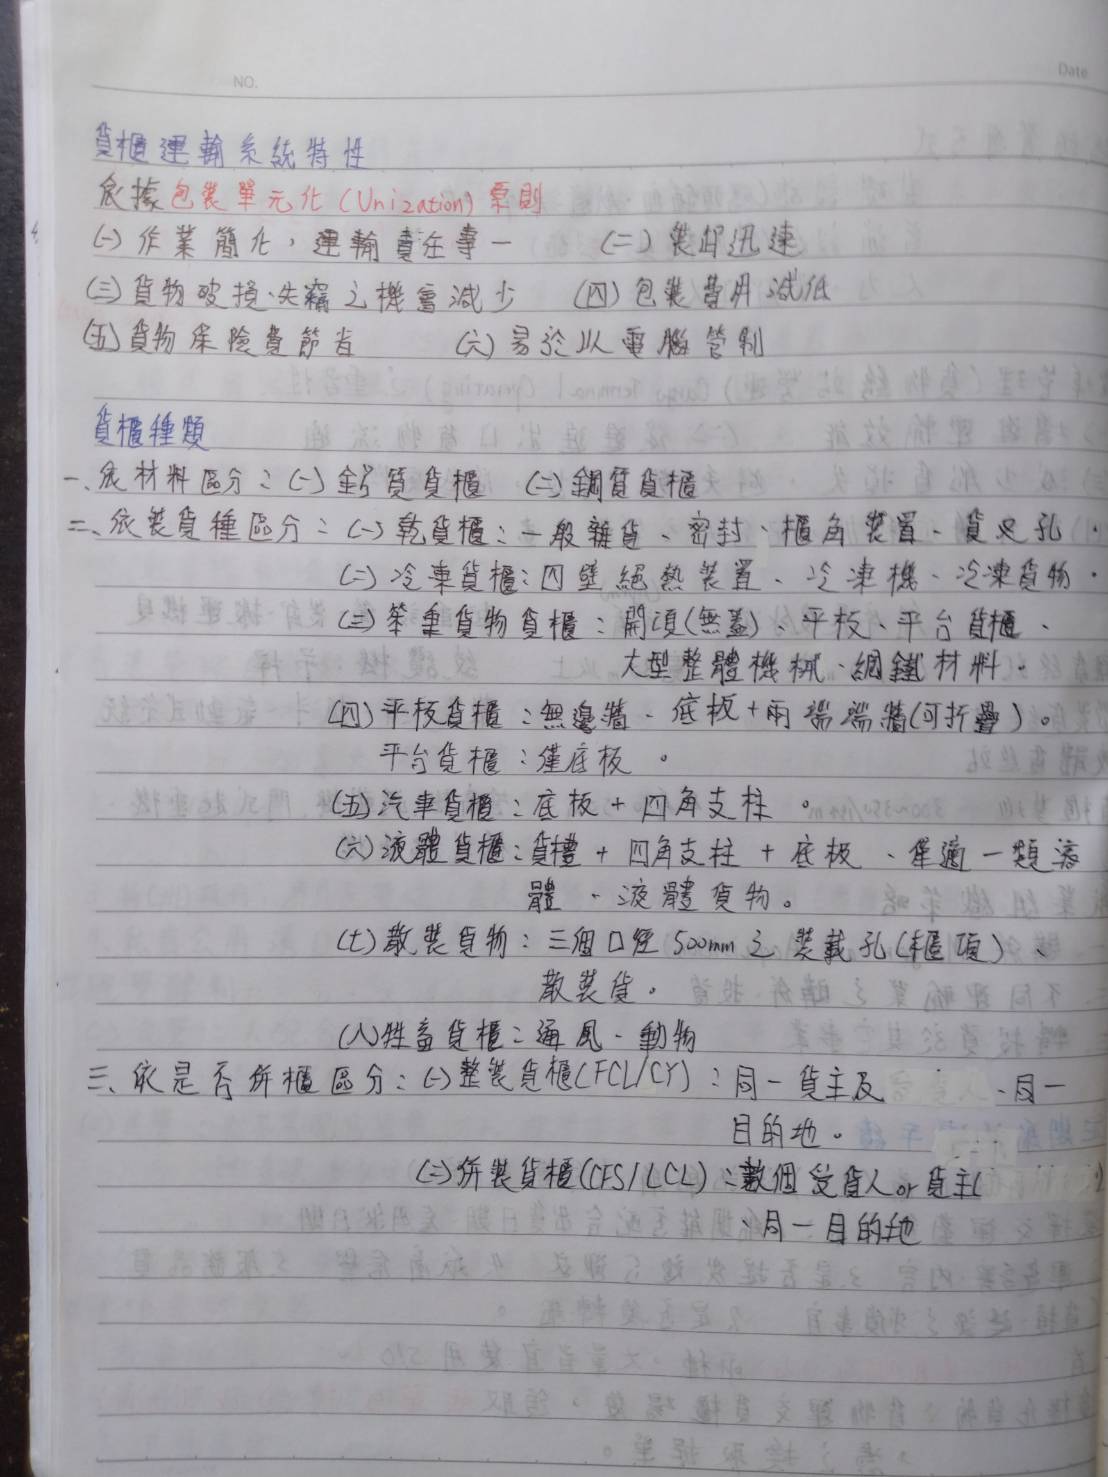 NO.
Date
貨櫃運輸系統特性
依據包裝單元化(Unization)原則
(一)作業簡化，運輸責任專一 (二)裝卸迅速
(三)貨物破損、失竊之機會減少 (四)包裝費用減低
(五)貨物保險費節省 (六)易於以電腦管制
貨櫃種類
一、依材料區分：(一)鋁質貨櫃 (二)鋼質貨櫃
二、依裝貨種區分：(一)乾貨櫃：一般雜貨、密封、櫃角裝置、貨叉孔。
(二)冷凍貨櫃：四壁絕熱裝置、冷凍機、冷凍貨物。
(三)笨重貨物貨櫃：開頂(無蓋)、平板、平台貨櫃、
大型整體機械、鋼鐵材料。
(四)平板貨櫃：無邊牆、底板+兩端端牆(可折疊)。
平台貨櫃：僅底板。
(五)汽車貨櫃：底板+四角支柱。
(六)液體貨櫃：貨槽+四角支柱+底板、僅適一類液
體、液體貨物。
(七)散裝貨物：三個口徑500mm之裝載孔(櫃頂)、
散裝貨。
(八)牲畜貨櫃：通風、動物
三、依是否併櫃區分：(一)整裝貨櫃(FCL/CY)：同一貨主及 、同一
目的地。
(二)併裝貨櫃(CFS/LCL)：數個受貨人or貨主(
、同一目的地